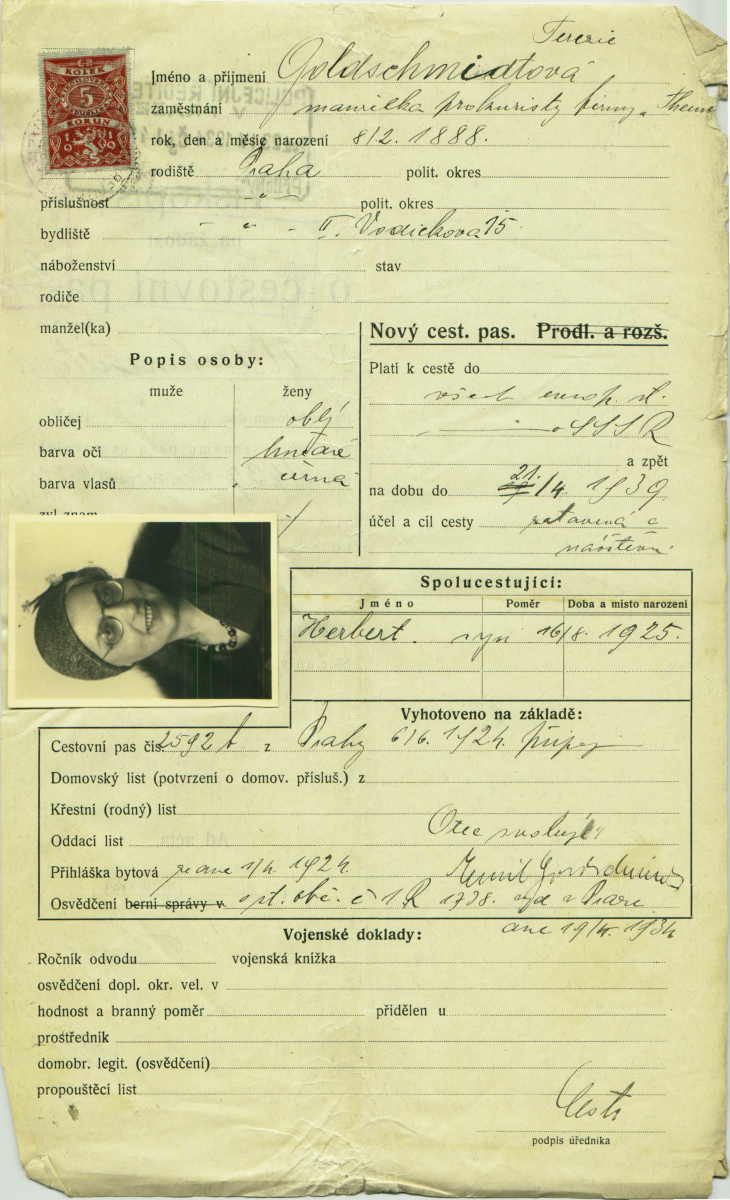 KOLEK
5
KORUN
Terezie
Jméno a příjmení Goldschmidtová
zaměstnání manželka prokuristy firmy
rok, den a měsíc narození 8/2. 1888.
rodiště Praha polit. okres
příslušnost -"- polit. okres
bydliště -"- II. Vodičkova 15
náboženství stav
rodiče
manžel(ka)
Nový cest. pas. Prodl. a rozš.
Popis osoby:
muže ženy
obličej oblý
barva očí hnědé
barva vlasů černá
zvl. znam.
Platí k cestě do
všech evrop. st.
SSSR
a zpět
na dobu do 21./4. 1939
účel a cíl cesty
Spolucestující:
Jméno Poměr Doba a místo narození
Herbert. syn 16/8. 1925.
Vyhotoveno na základě:
Cestovní pas čís. 2592 z Prahy 6/6. 1924.
Domovský list (potvrzení o domov. přísluš.) z
Křestní (rodný) list
Otec
Oddací list
Přihláška bytová ze dne 1/4. 1924.
Emil Goldschmidt
Osvědčení berní správy v. č 1 R 1738.
dne 19/4. 1934
Vojenské doklady:
Ročník odvodu vojenská knížka
osvědčení dopl. okr. vel. v
hodnost a branný poměr přidělen u
prostředník
domobr. legit. (osvědčení)
propouštěcí list
podpis úředníka